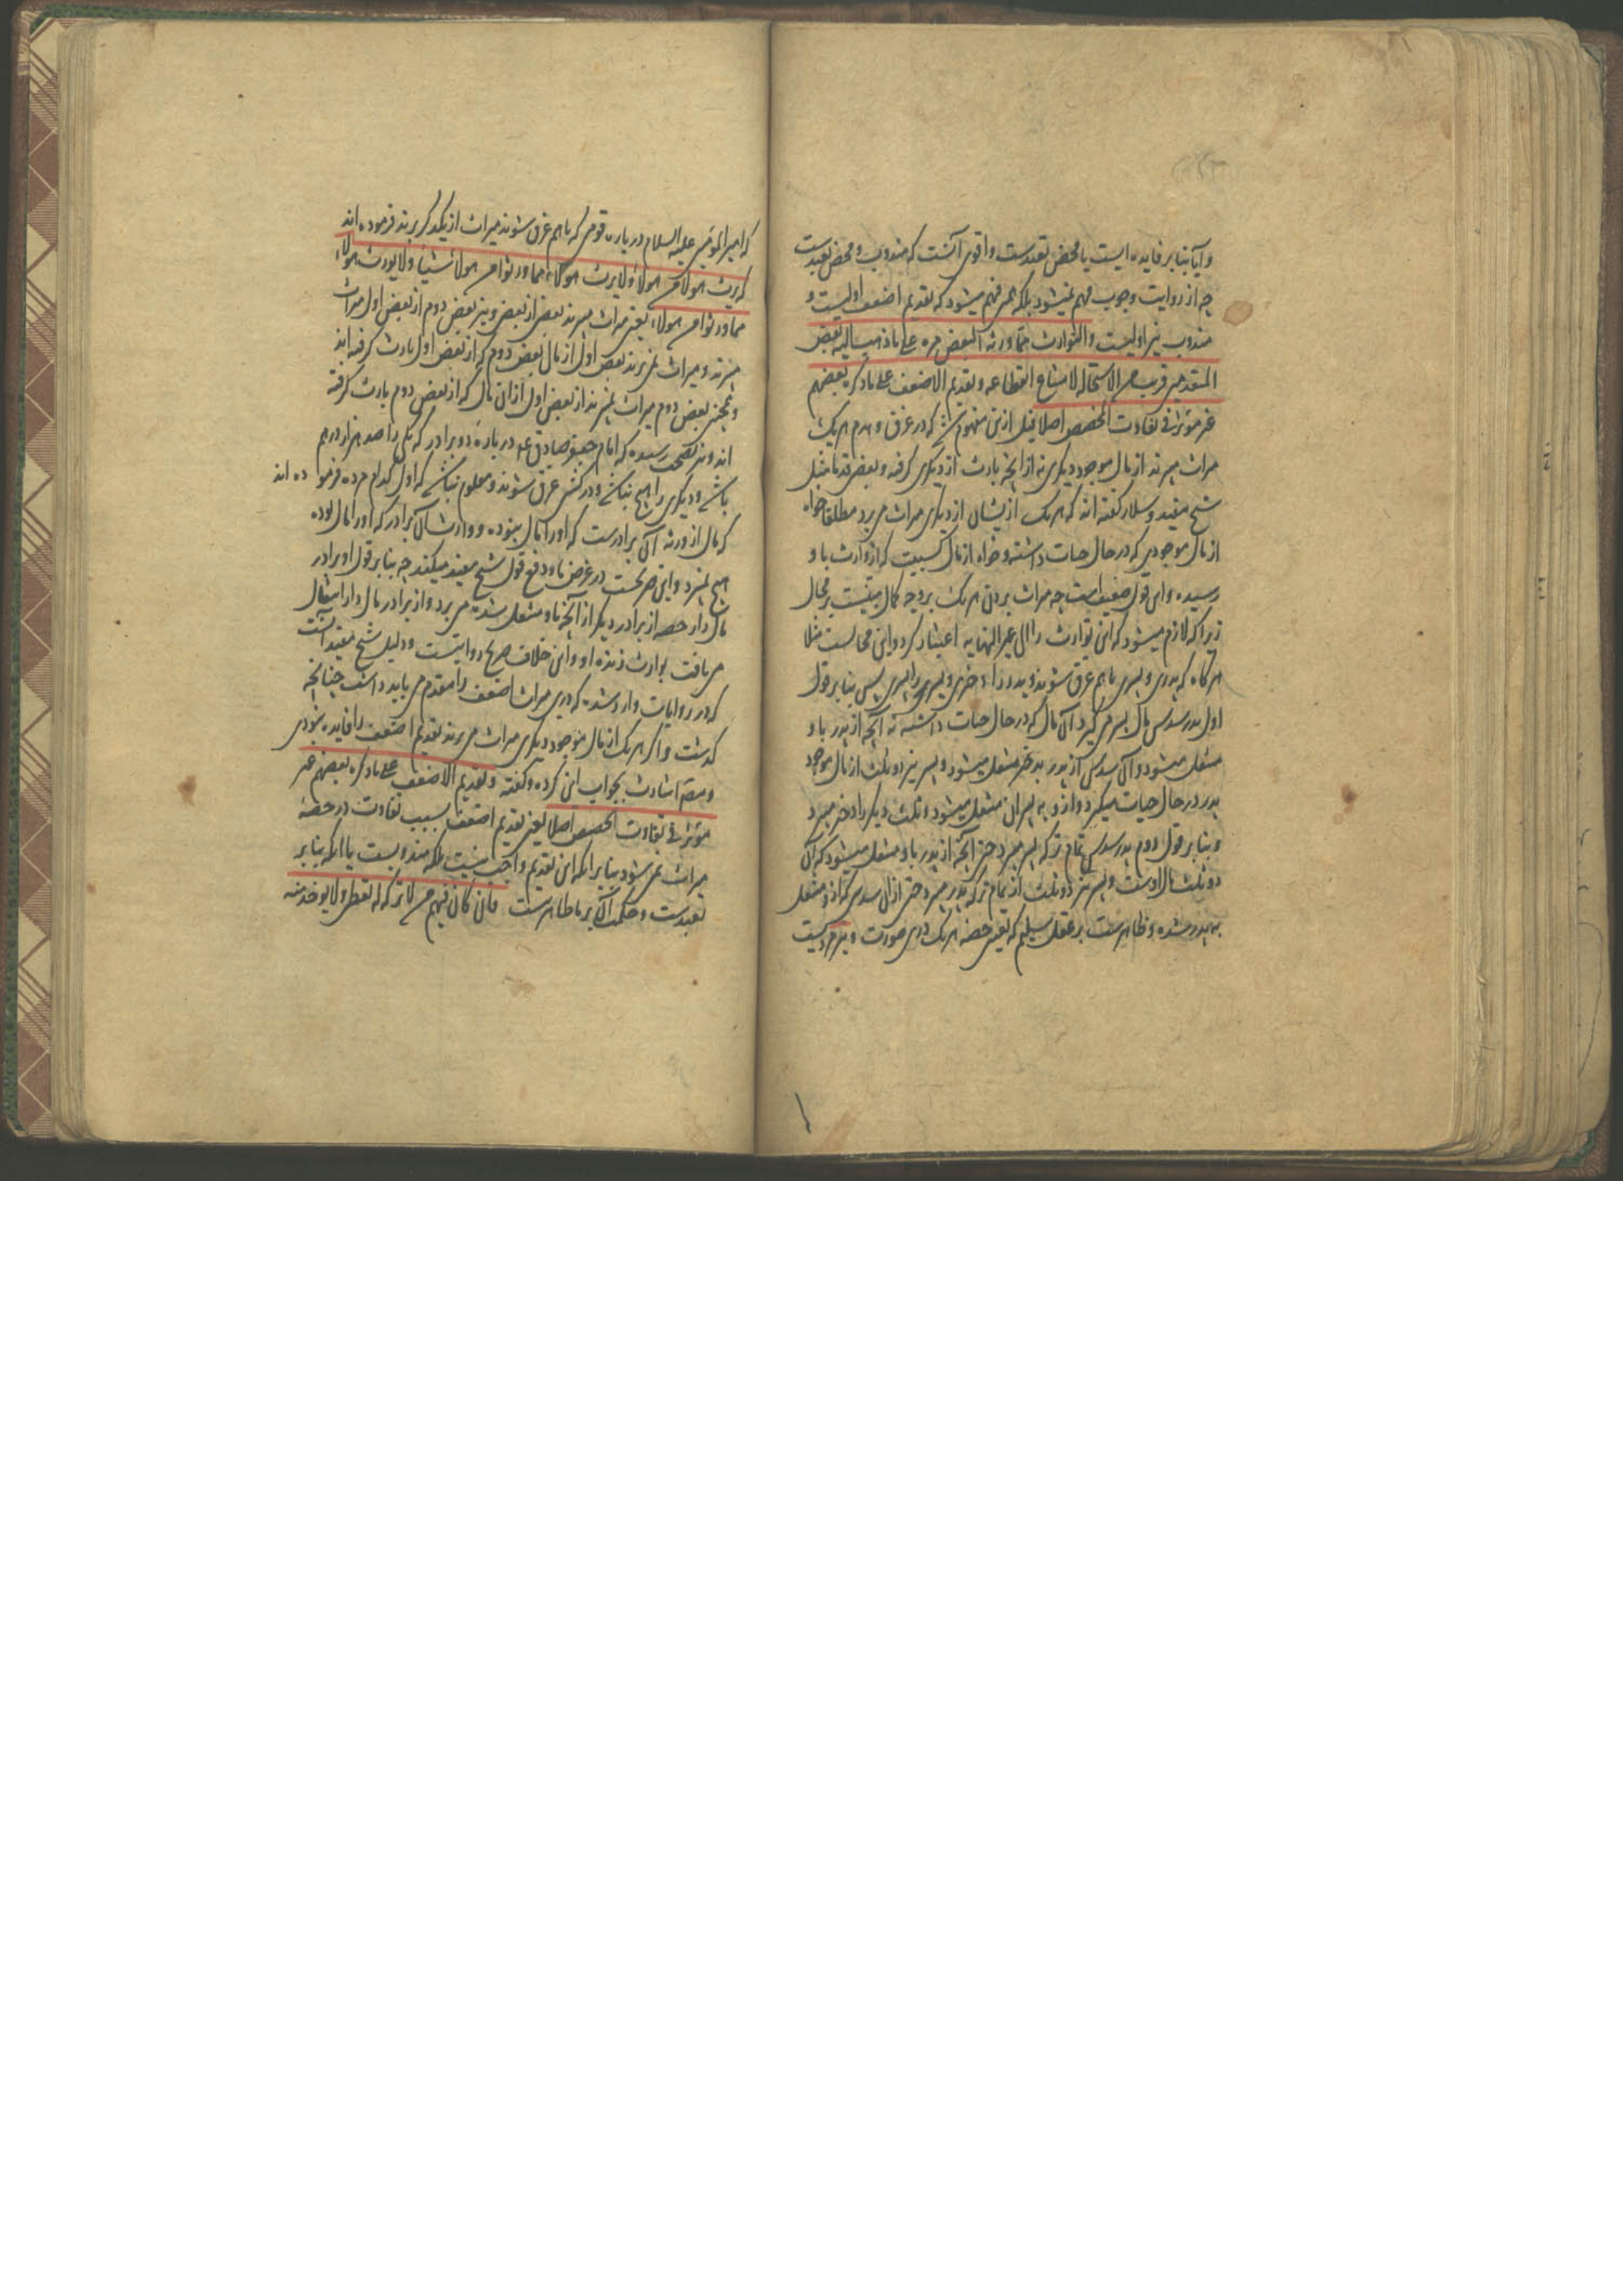 و آیا بنا بر فایده ایست یا محض تعبدست و اقوی آنست که مندوب و محض تعبدست
چه از روایت وجوب فهم نمیشود بلکه همین فهم میشود که تقدیم اضعف اولیست و
مندوب نیز اولیست و التوارث مما ورثه البعض مرة علی ما ذهب الیه بعض
المتقدمین قریب من الاستحالة لامتناع انقطاعه و تقدیم الاضعف علی ما ذکره بعضهم
غیر موثر فی تفاوت الحصص اصلا قبل ازین مفهوم شد که در غرق و هدم هر یک
میراث میبرند از مال موجود دیگری نه از آنچه بارث از دیگری گرفته و بعض قدما مثل
شیخ مفید و سلار گفته اند که هر یک از یشان از دیگری میراث می برد مطلقا خواه
از مال موجودی که در حال حیات داشته و خواه از مال که از وارث با و
رسیده و این قول ضعیف است چه میراث بردن هر یک بر وجه کمال مبنیست بر محال
زیرا که لازم میشود که این توارث را الی غیر النهایه اعتبار کرد و این محالست مثلا
هر گاه که پدری و پسری با هم غرق شوند و پدر را دختری و پسر را پسری پس بنا بر قول
اول پدر سدس مال پسر می گیرد آن مال که در حال حیات داشته نه آنچه از پدر با و
منتقل میشود و آن سدس از پدر بدختر منتقل میشود و پسر نیز دو ثلث از مال موجود
پدر در حال حیات میگیرد و از و به پسران منتقل میشود و ثلث دیگر را دختر میبرد
و بنا بر قول دوم پدر سدس تمام ترکه پسر میبرد حتی آنچه از پدر با و منتقل میشود که آن
دو ثلث مال اوست و پسر نیز دو ثلث از تمام ترکه پدر میبرد حتی از آن سدس که از و منتقل
به پدر شده و ظاهرست بر عقل سلیم که تعیین حصه هر یک درین صورت
که امیر المؤمنین علیه السلام در باره قومی که با هم غرق شوند میراث از یکدیگر برند فرموده اند
که یرث هولاء من هولاء و لا یرث هولاء مما ورثوا من هولاء شیئا و لا یورث هولاء
مما ورثوا من هولاء یعنی میراث میبرند بعض از بعض و نیز بعض دوم از بعض اول میراث
میبرند و میراث نمی برند بعض اول از مال بعض دوم که از بعض اول بارث گرفته اند
و همچنین بعض دوم میراث نمیبرند از بعض اول از آن مال که از بعض دوم بارث گرفته
اند و نیز بصحت رسیده که امام جعفر صادق ع در باره دو برادر که یکی را صد هزار درهم
باشد و دیگری را هیچ نباشد و در کشتی غرق شوند و معلوم نباشد که اول کدام مرده فرموده اند
که مال از ورثه آن برادرست که او را مال نبوده و وارثان آن برادر که او را مال بوده
هیچ نمیبرد و این صریحست در غرض ما و دفع قول شیخ مفید میکند چه بنا بر قول او برادر
مال دار حصه از برادر دیگر از آنچه با و منتقل شده می برد و از برادر مال دار انتقال
می یافت بوارث زنده او و این خلاف صریح روایتست و دلیل شیخ مفید آنست
که در روایات وارد شده که درین میراث اضعف را مقدم می باید داشت چنانچه
گذشت و اگر هر یک از مال موجود دیگری میراث می برند تقدیم اضعف را فایده نبودی
و مصنف اشارت بجواب این کرده و گفته و تقدیم الاضعف علی ما ذکره بعضهم غیر
موثر فی تفاوت الحصص اصلا یعنی تقدیم اضعف سبب تفاوت در حصه
میراث نمی شود بنا بر آنکه این تقدیم واجب نیست بلکه مندوبست یا آنکه بنا بر
تعبدست و حکمت آن بر ما ظاهر نیست فان کان فیهم من لا ترکة له یعطی و لا یوخذ منه